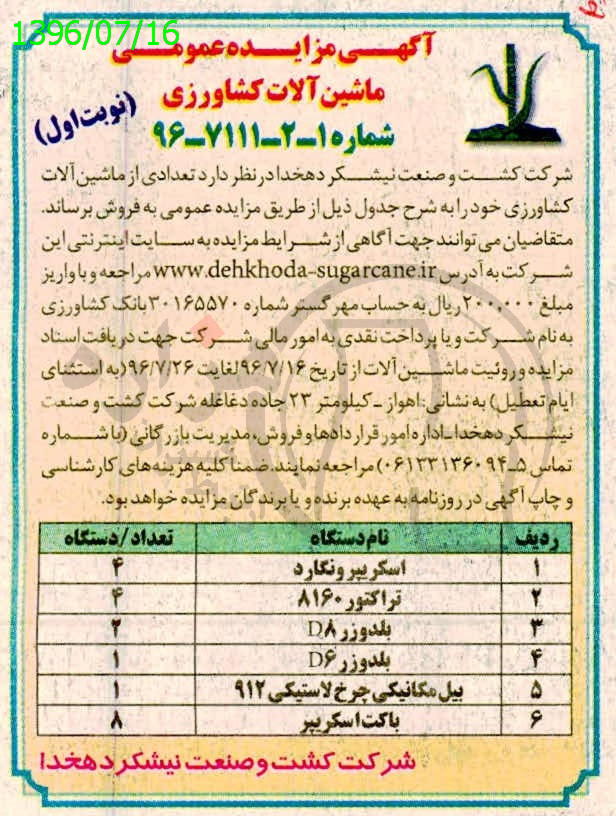 1396/07/16
آگهی مزایده عمومی
ماشین آلات کشاورزی
(نوبت اول)
شماره ۱-۲-۷۱۱۱-۹۶
شرکت کشت و صنعت نیشکر دهخدا در نظر دارد تعدادی از ماشین آلات
کشاورزی خود را به شرح جدول ذیل از طریق مزایده عمومی به فروش برساند.
متقاضیان می توانند جهت آگاهی از شرایط مزایده به سایت اینترنتی این
شرکت به آدرس www.dehkhoda-sugarcane.ir مراجعه و با واریز
مبلغ ۲۰۰,۰۰۰ ریال به حساب مهر گستر شماره ۳۰۱۶۵۵۷۰ بانک کشاورزی
به نام شرکت و یا پرداخت نقدی به امور مالی شرکت جهت دریافت اسناد
مزایده و روئیت ماشین آلات از تاریخ ۹۶/۷/۱۶ لغایت ۹۶/۷/۲۶ (به استثنای
ایام تعطیل) به نشانی: اهواز - کیلومتر ۲۳ جاده دغاغله شرکت کشت و صنعت
نیشکر دهخدا-اداره امور قراردادها و فروش، مدیریت بازرگانی (با شماره
تماس ۵-۰۶۱۳۳۱۳۶۰۹۴) مراجعه نمایند. ضمنا کلیه هزینه های کارشناسی
و چاپ آگهی در روزنامه به عهده برنده و یا برندگان مزایده خواهد بود.
ردیف نام دستگاه تعداد/دستگاه
۱ اسکریپر ونگارد ۴
۲ تراکتور ۸۱۶۰ ۴
۳ بلدوزر D۸ ۲
۴ بلدوزر D۶ ۱
۵ بیل مکانیکی چرخ لاستیکی ۹۱۲ ۱
۶ باکت اسکریپر ۸
شرکت کشت و صنعت نیشکر دهخدا